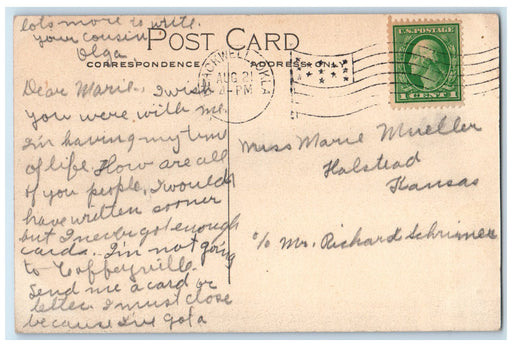 lots more to write.
your cousin
Olga
POST CARD
CORRESPONDENCE
ADDRESS ONLY
BLACKWELL, OKLA.
AUG 21
-PM
U.S. POSTAGE
1 CENT 1
Dear Marie, I wish
you were with me
I'm having my time
of life. How are all
of you people, I would
have written sooner
but I never got enough
cards. I'm not going
to Coffeyville.
Send me a card or
letter. I must close
because I've got a
Miss Marie Mueller
Halstead
Kansas
c/o Mr. Richard Schrimer